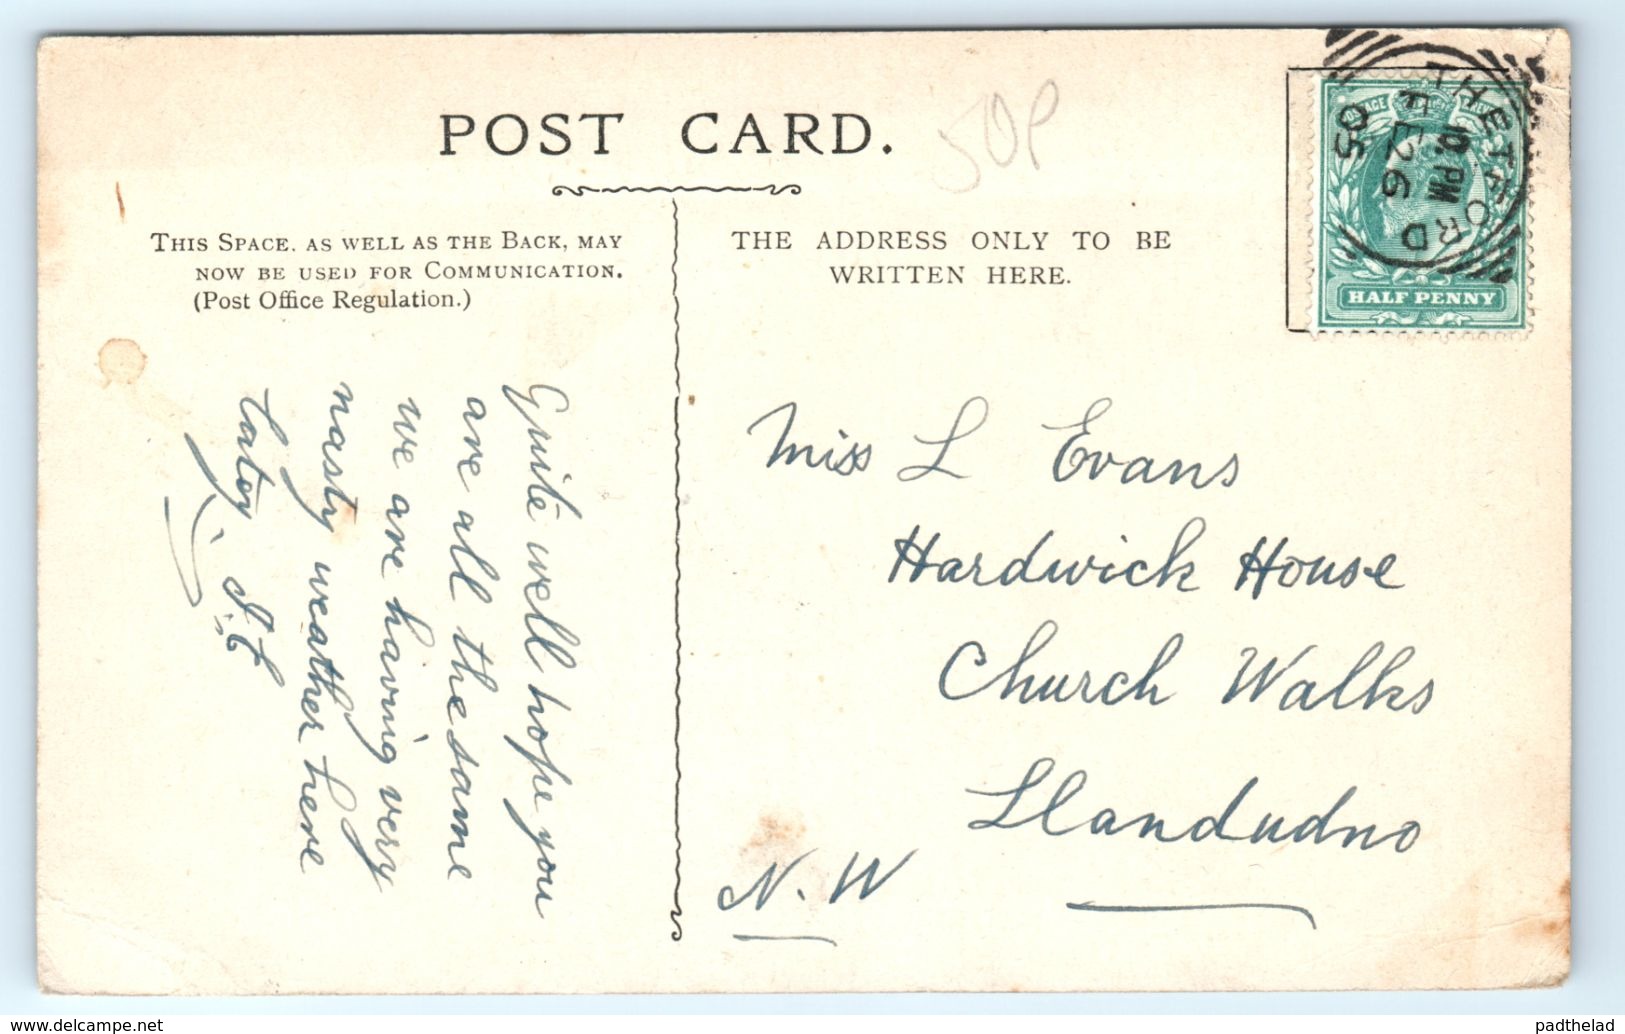 POST CARD.
50P
THIS SPACE. AS WELL AS THE BACK, MAY
NOW BE USED FOR COMMUNICATION.
(Post Office Regulation.)
THE ADDRESS ONLY TO BE
WRITTEN HERE.
THETFORD
10. PM
FE 26
05
HALF PENNY
Quite well hope you
are all the same
we are having very
nasty weather here
Miss L Evans
Hardwick House
Church Walks
Llandudno
N. W
padthelad
delcampe.net